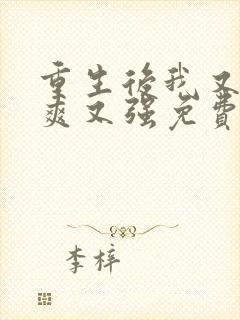 重生后我又
爽又强免费
李梓